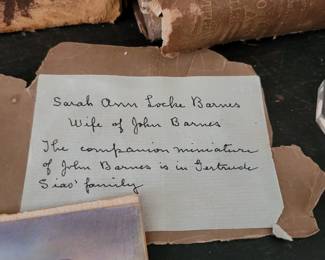 Sarah Ann Locke Barnes
Wife of John Barnes
The companion miniature
of John Barnes is in Gertrude
Sias' family